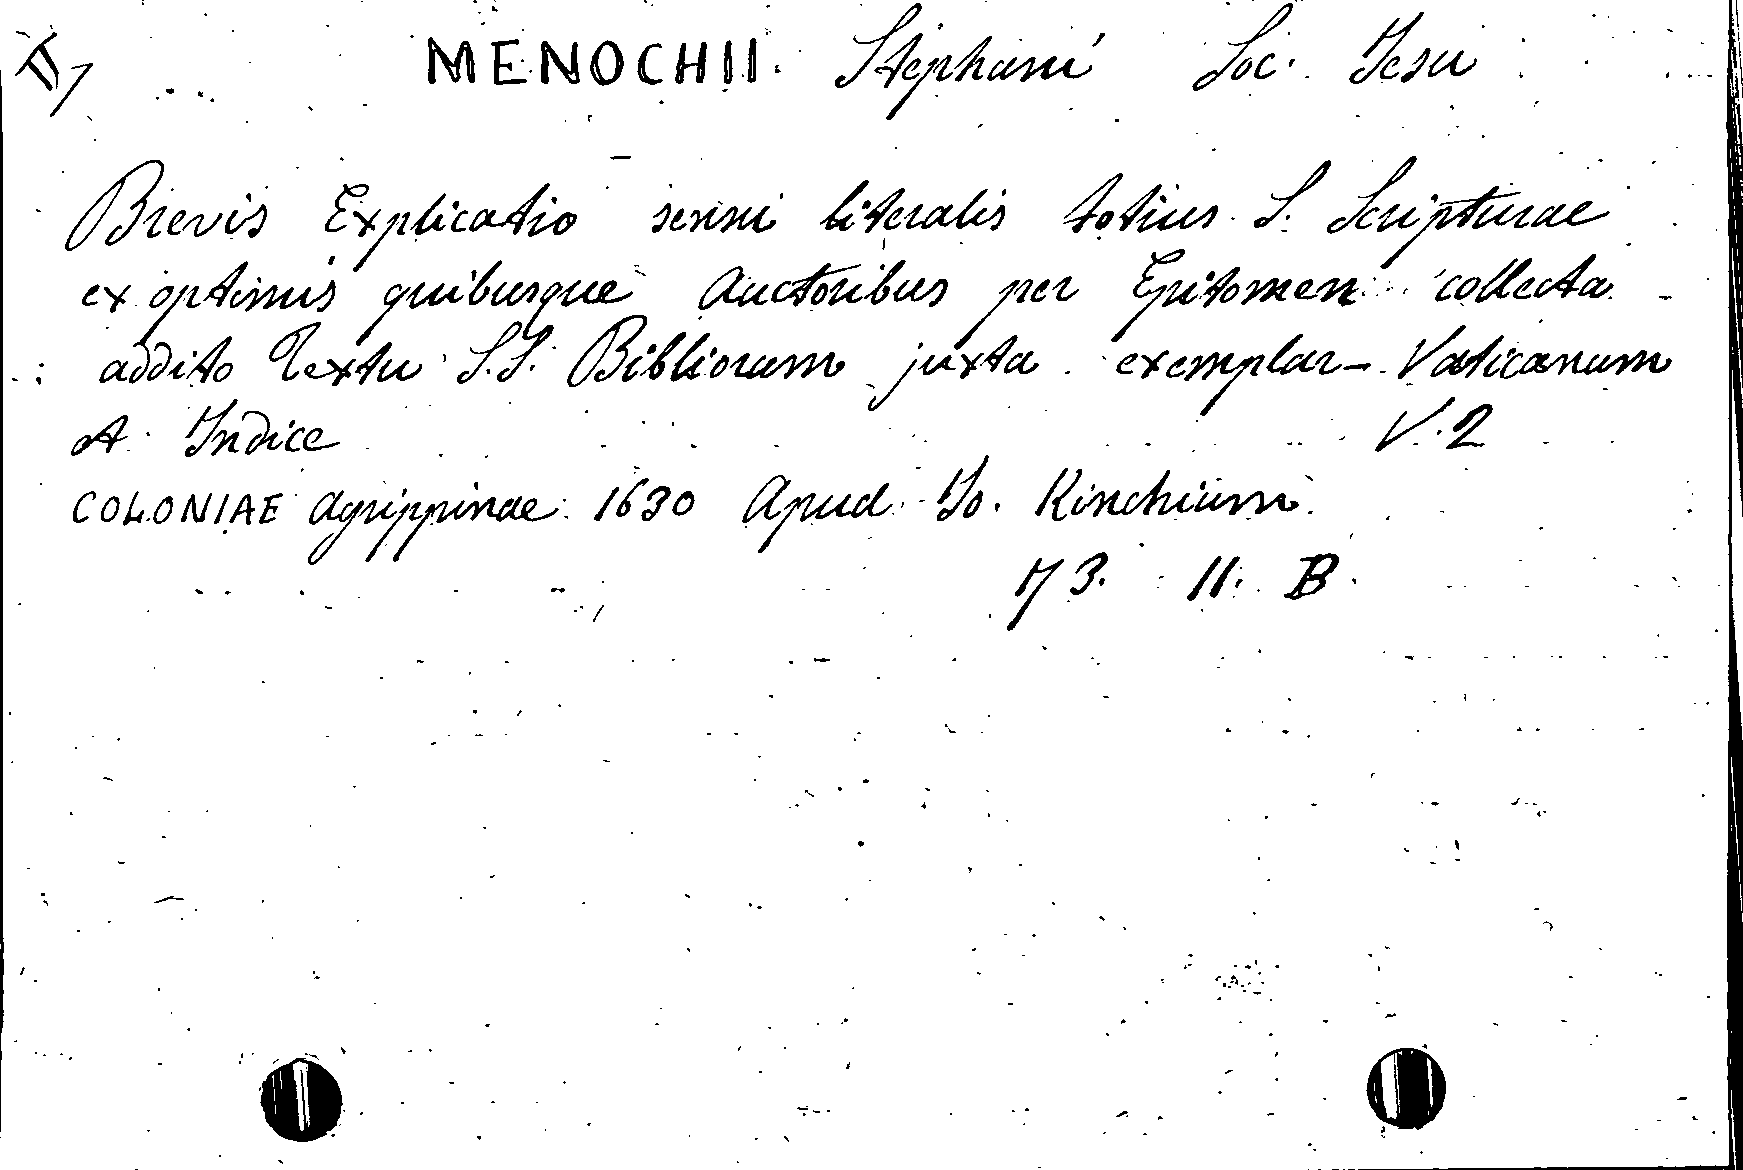 MENOCHII. Stephani Soc. Iesu
Brevis Explicatio sensi literalis totius S. Scripturae
ex optimis quibusque Auctoribus per Epitomen collecta
addito Textu S.S. Bibliorum juxta exemplar Vaticanum
A Indice V. 2
COLONIAE Agrippinae 1630 Apud Io. Kinchium
73. 11. B